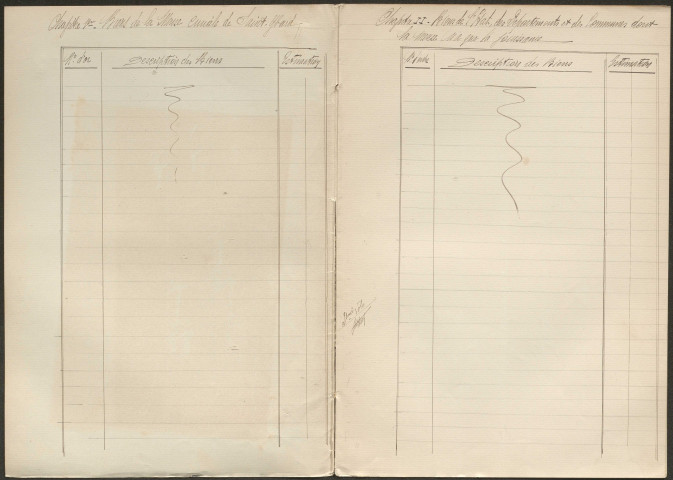 Chapitre 1er - Biens de la Mense Curiale de Saint
N° d'or
Description des Biens
Estimation
Chapitre II - Biens de l'Etat, des Départements et des Communes dont
la mense n'a que la jouissance
N° d'ordre
Description des Biens
Estimation